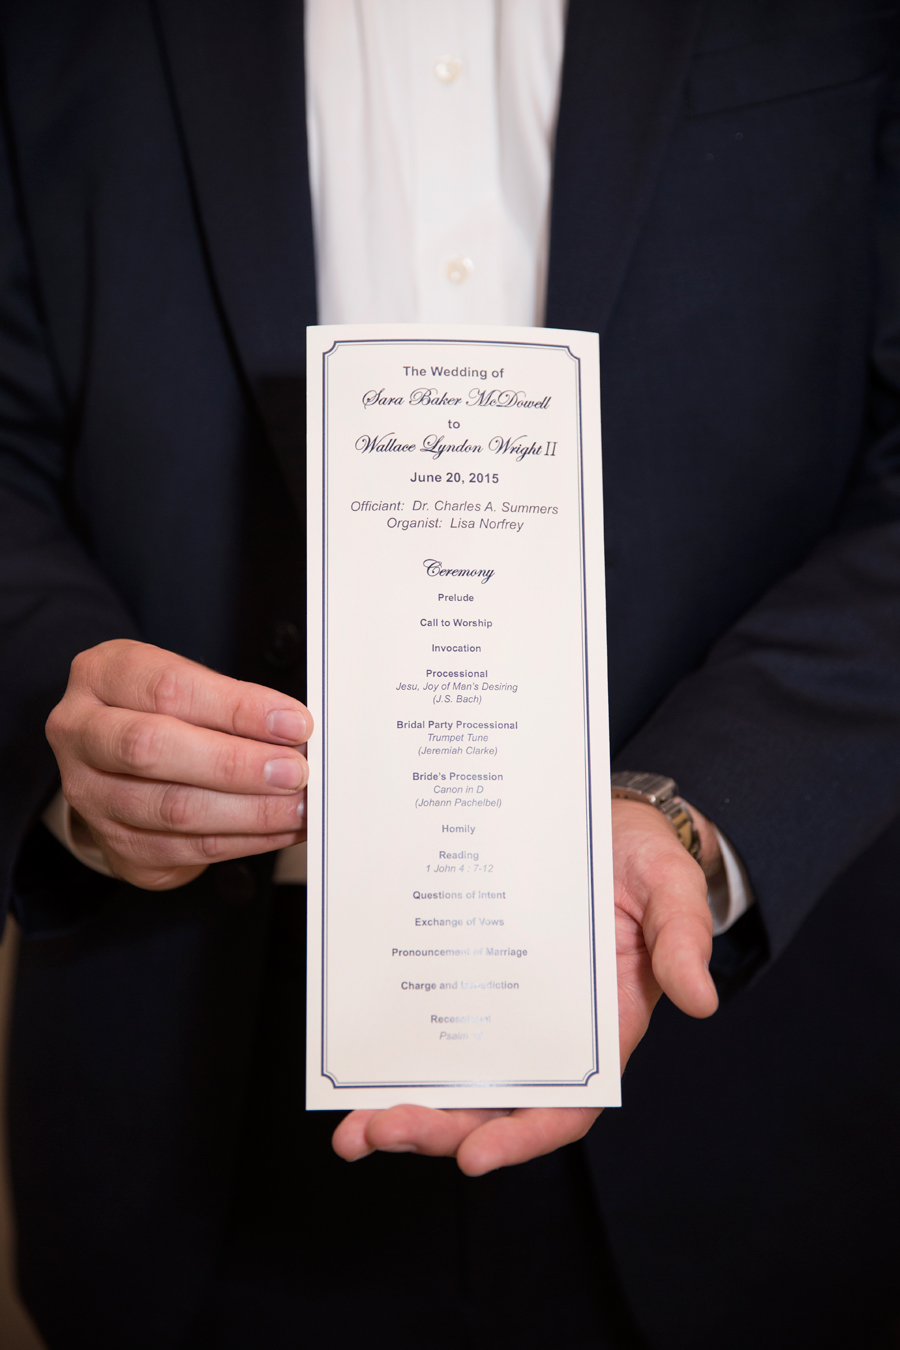 The Wedding of
Sara Baker McDowell
to
Wallace Lyndon Wright II
June 20, 2015
Officiant: Dr. Charles A. Summers
Organist: Lisa Norfrey
Ceremony
Prelude
Call to Worship
Invocation
Processional
Jesu, Joy of Man's Desiring
(J.S. Bach)
Bridal Party Processional
Trumpet Tune
(Jeremiah Clarke)
Bride's Procession
Canon in D
(Johann Pachelbel)
Homily
Reading
1 John 4 : 7-12
Questions of Intent
Exchange of Vows
Pronouncement of Marriage
Charge and
Psalm